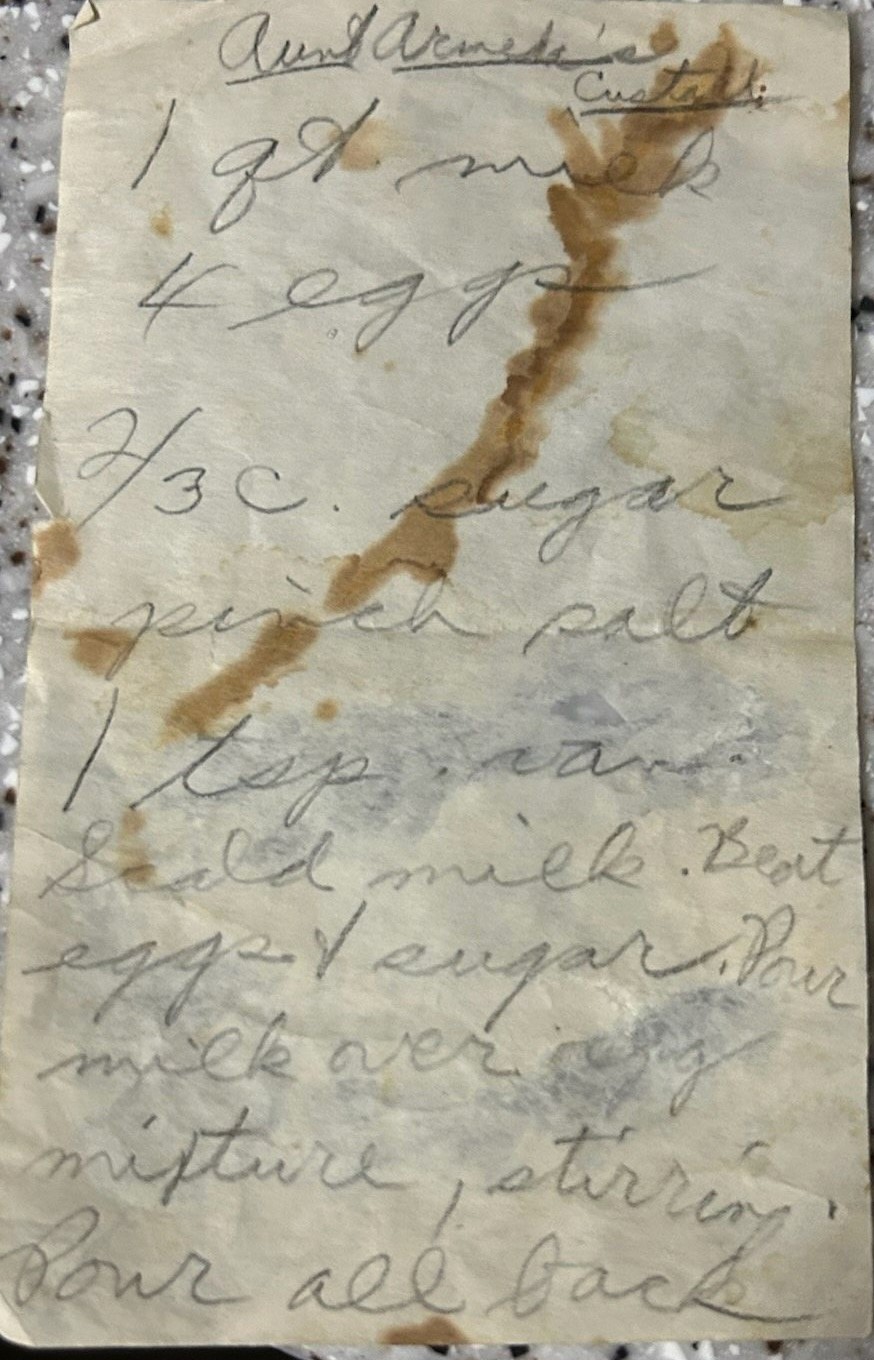 Aunt Armeda's
Custard:
1 qt. milk
4 eggs
2/3 c. sugar
pinch salt
1 tsp. van.
Scald milk. Beat
eggs & sugar. Pour
milk over egg
mixture, stirring.
Pour all back